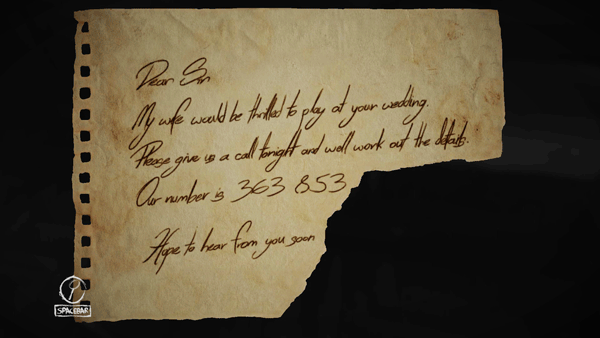 Dear Sir
My wife would be thrilled to play at your wedding.
Please give us a call tonight and we'll work out the details.
Our number is 363 853
Hope to hear from you soon
SPACEBAR